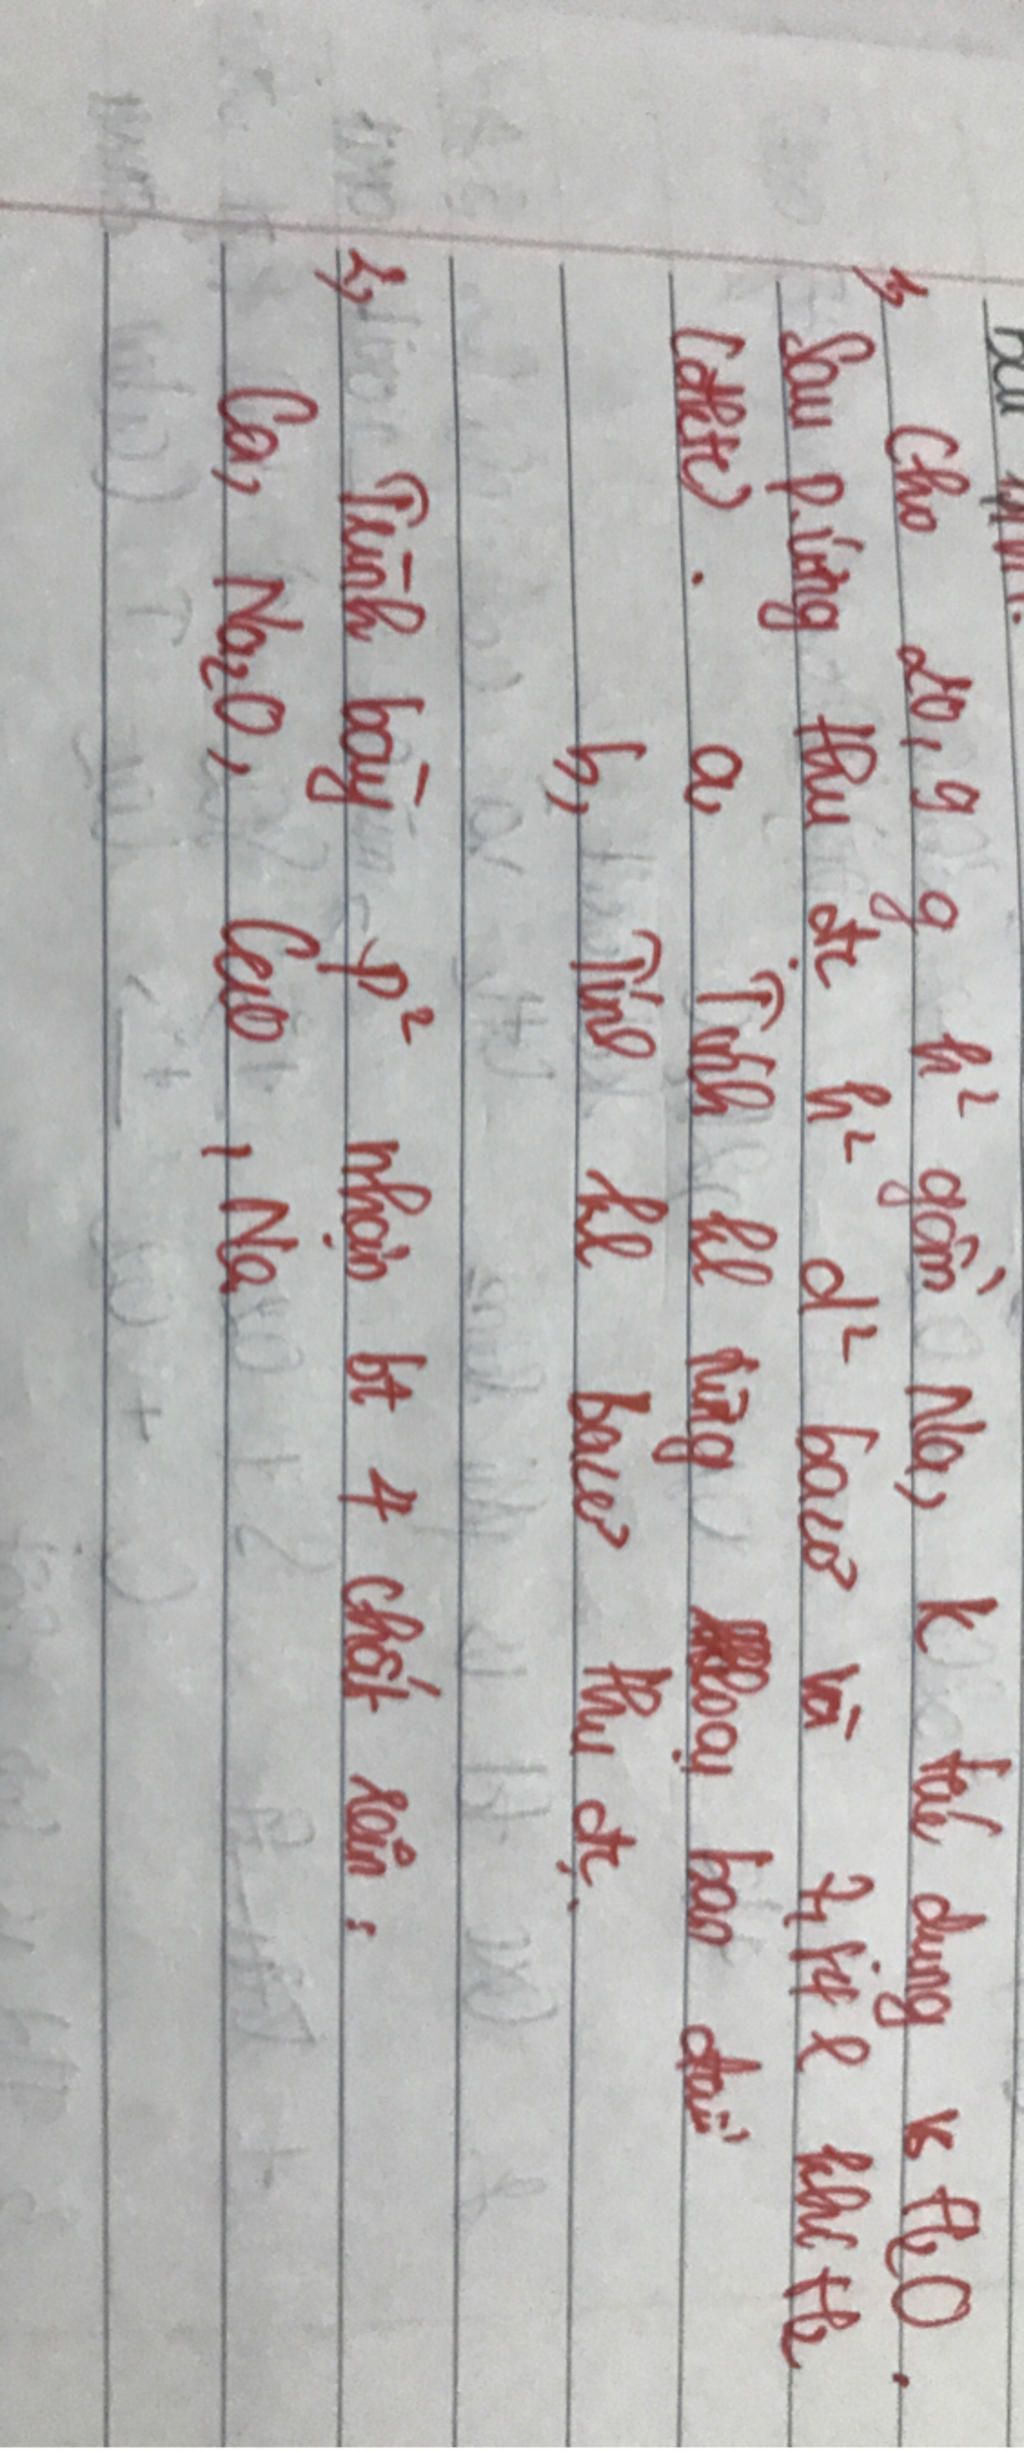 1, Cho 20,9 g h² gồm Na, K tác dụng vs H₂O.
Sau p.ứng thu đc h² d² bazơ và 7,84 l khí H₂
(đktc). a, Tính kl từng kloại ban đầu
b, Tính kl bazơ thu đc.
2, Trình bày p² nhận bt 4 chất rắn:
Ca, Na₂O, CuO, Na